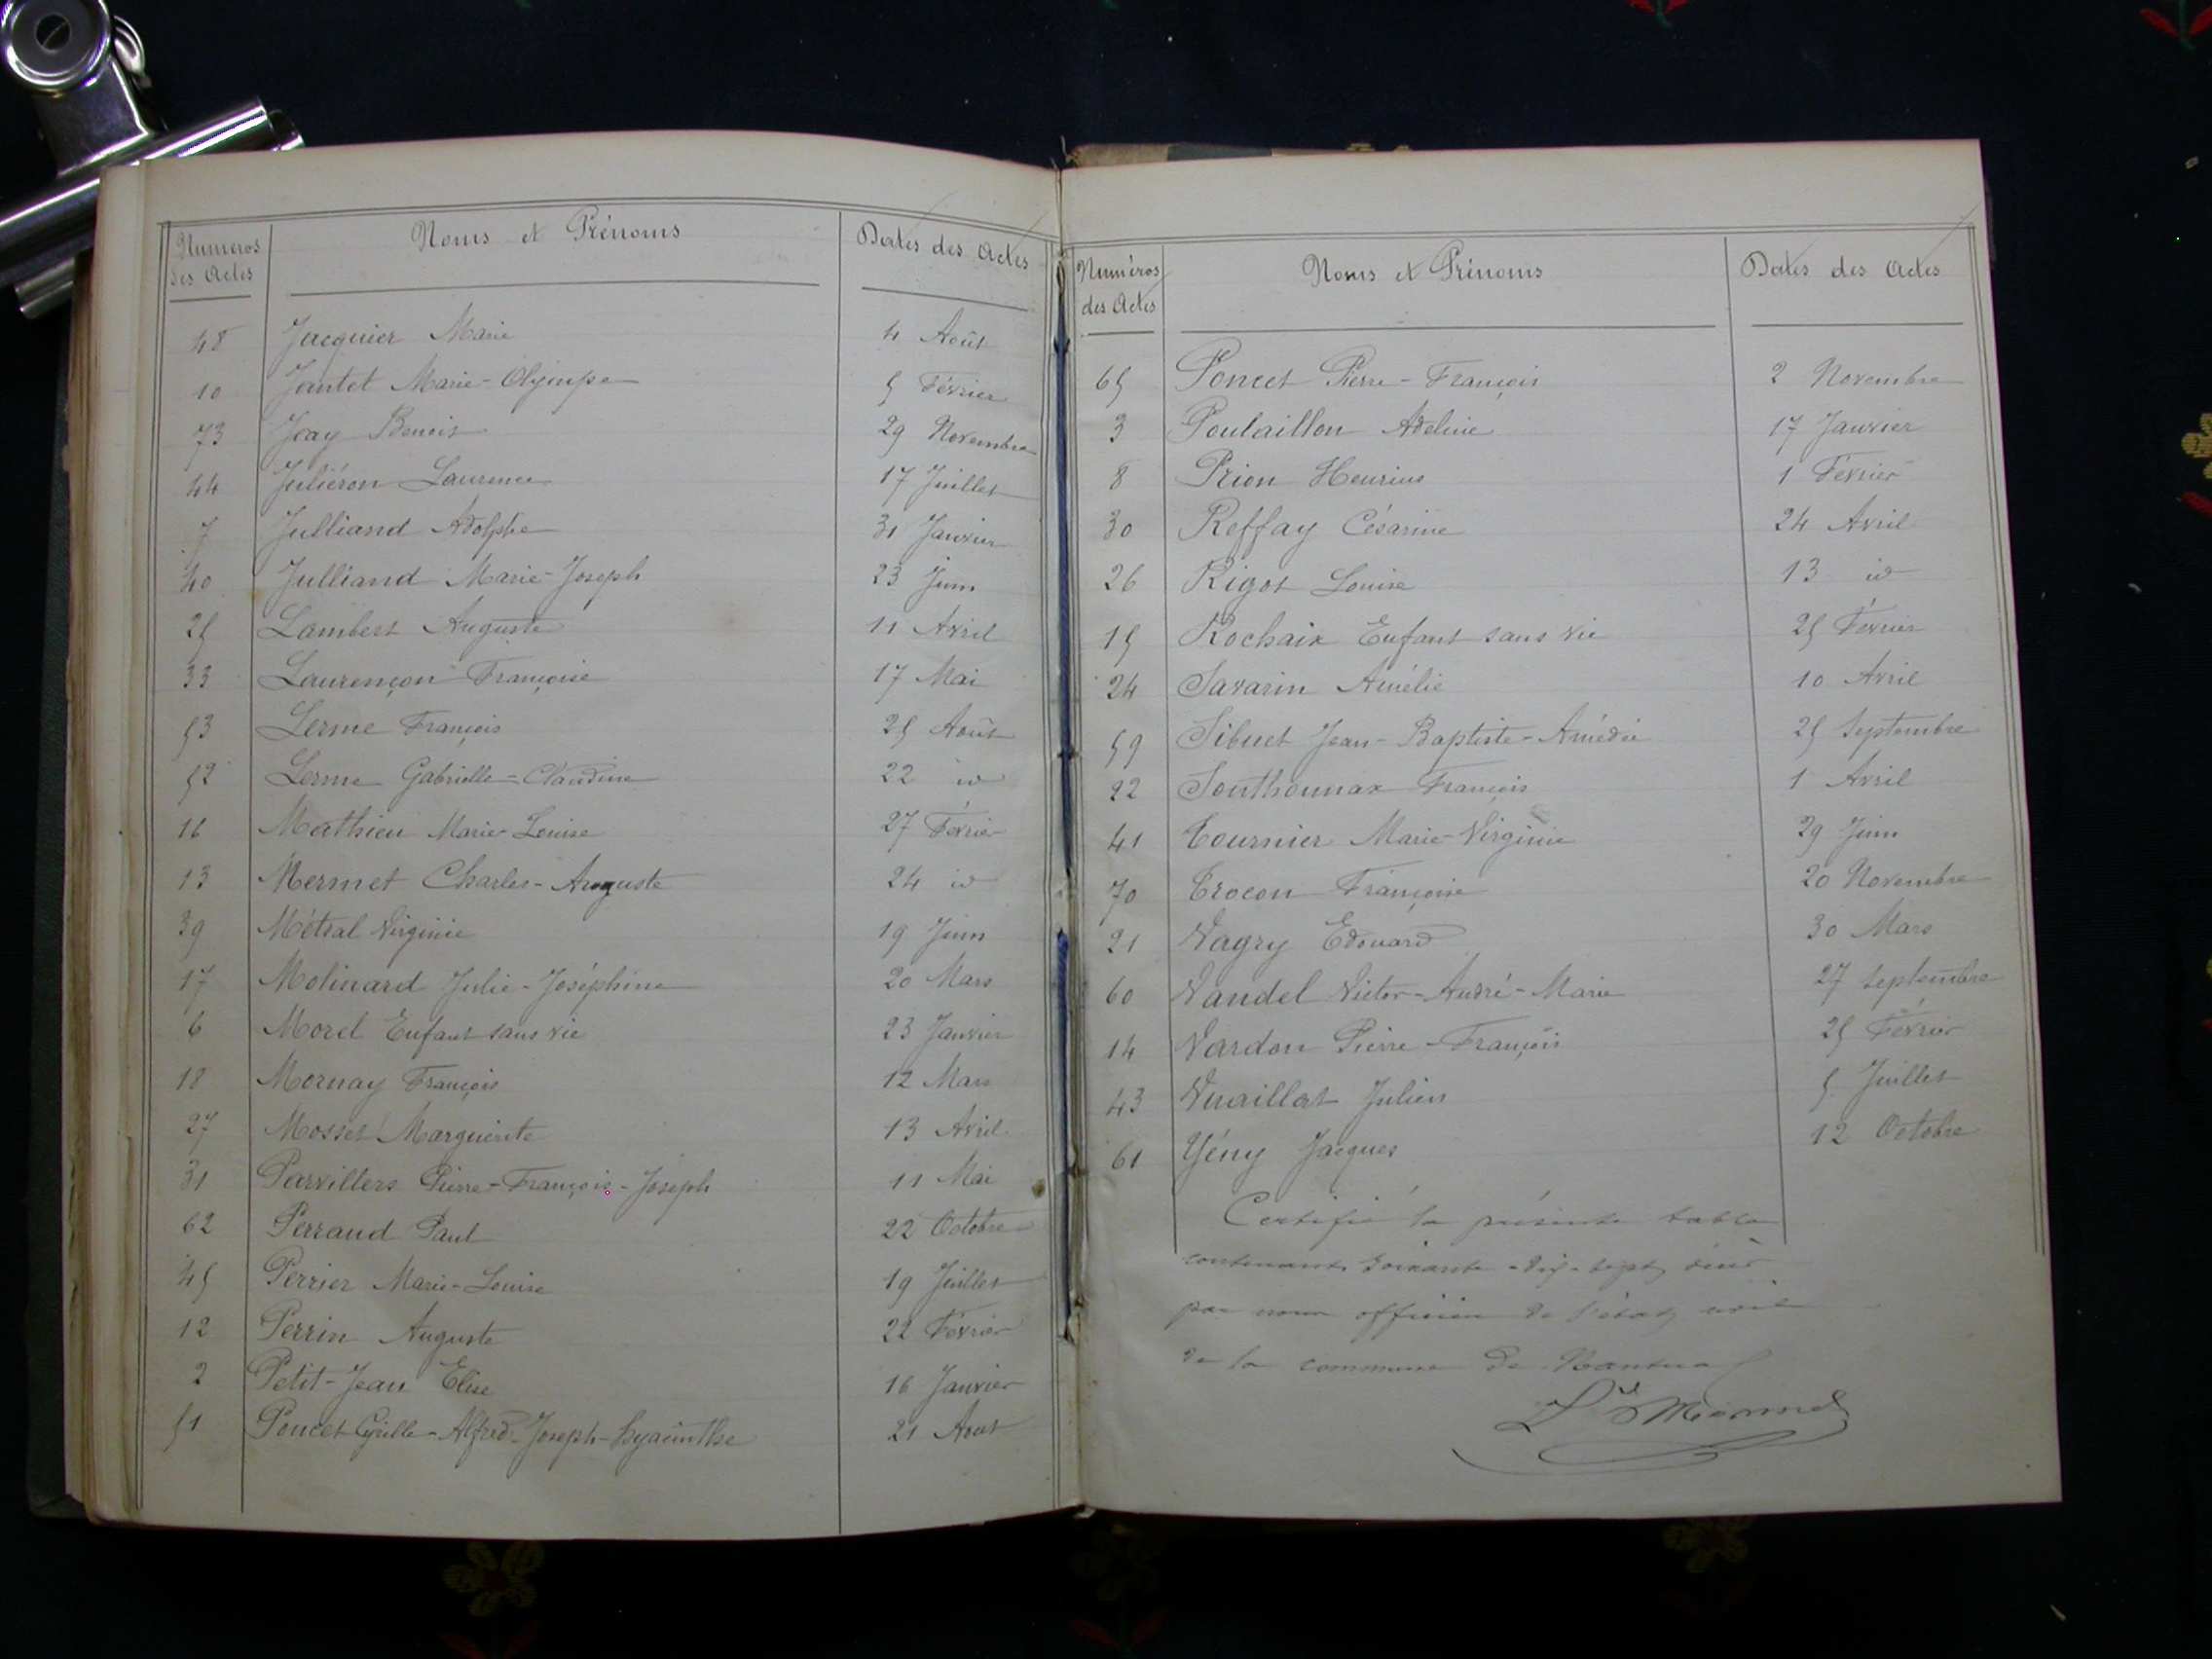 Numéros Noms et Prénoms Dates des Actes
des Actes
48 Jacquier Marie 4 Août
10 Jantet Marie-Olympe 5 Février
73 Jeay Benoit 29 Novembre
44 Juliéron Laurence 17 Juillet
7 Julliand Adolphe 31 Janvier
40 Julliand Marie-Joseph 23 Juin
25 Lambert Auguste 11 Avril
33 Laurençon Françoise 17 Mai
53 Lerme François 25 Août
52 Lerme Gabrielle-Claudine 22 id
16 Mathieu Marie-Louise 27 Février
13 Mermet Charles-Auguste 24 id
39 Métral Virginie 19 Juin
17 Molinard Julie-Joséphine 20 Mars
6 Morel Enfant sans vie 23 Janvier
18 Mornay François 12 Mars
27 Mosset Marguerite 13 Avril
31 Parvillers Pierre-François-Joseph 11 Mai
62 Perraud Paul 22 Octobre
45 Perrier Marie-Louise 19 Juillet
12 Perrin Auguste 22 Février
2 Petit-Jean Elise 16 Janvier
51 Poncet Cyrille-Alfred-Joseph-hyacinthe 21 Aout
Numéros Noms et Prénoms Dates des Actes
des Actes
65 Poncet Pierre-François 2 Novembre
3 Poulaillon Adeline 17 Janvier
8 Prion Heurius 1 Février
30 Reffay Césarine 24 Avril
26 Rigot Louise 13 id
15 Rochaix Enfant sans vie 25 Février
24 Savarin Amélie 10 Avril
59 Sibuet Jean-Baptiste-Amédée 25 Septembre
22 Southonnax François 1 Avril
41 Tournier Marie-Virginie 29 Juin
70 Trocon Françoise 20 Novembre
21 Vagry Edouard 30 Mars
60 Vandel Victor-André-Marie 27 Septembre
14 Vardon Pierre-François 25 Février
43 Vuaillat Julien 5 Juillet
61 Yény Jacques 12 Octobre
Certifié la présente table
contenant soixante-dix-sept décès
par nous officier de l'état civil
de la commune de Nantua